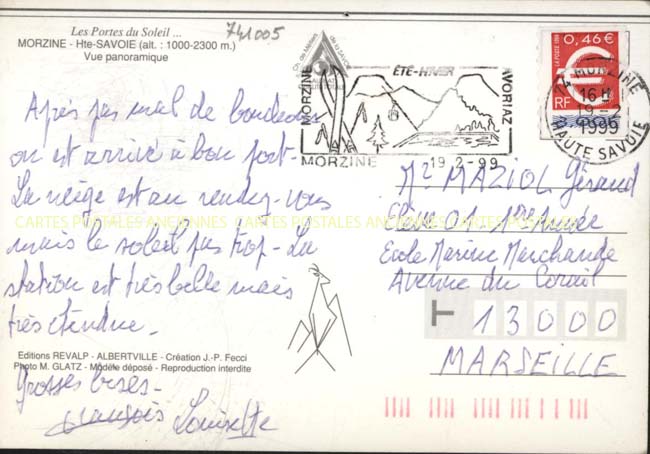 Les Portes du Soleil ...
MORZINE - Hte-SAVOIE (alt. : 1000-2300 m.)
Vue panoramique
741005
Ch. de Métiers
de la SAVOIE
ÉTÉ-HIVER
MORZINE
AVORIAZ
MORZINE 19-2-99
0,46€
LA POSTE 1999
RF
74 MORZINE
16 H
19-2
1999
HAUTE SAVOIE
Après pas mal de bouchons
on est arrivé à bon port -
La neige est au rendez-vous
mais le soleil pas trop - La
station est très belle mais
très étendue -
Grosses bises -
François Louisette
Mr MAZIOL Gérard
Elève 01 1ère Année
Ecole Marine Marchande
Avenue du Corail
13000
MARSEILLE
Editions REVALP - ALBERTVILLE - Création J.-P. Fecci
Photo M. GLATZ - Modèle déposé - Reproduction interdite
CARTES POSTALES ANCIENNES CARTES POSTALES ANCIENNES CARTES POSTALES ANCIENNES